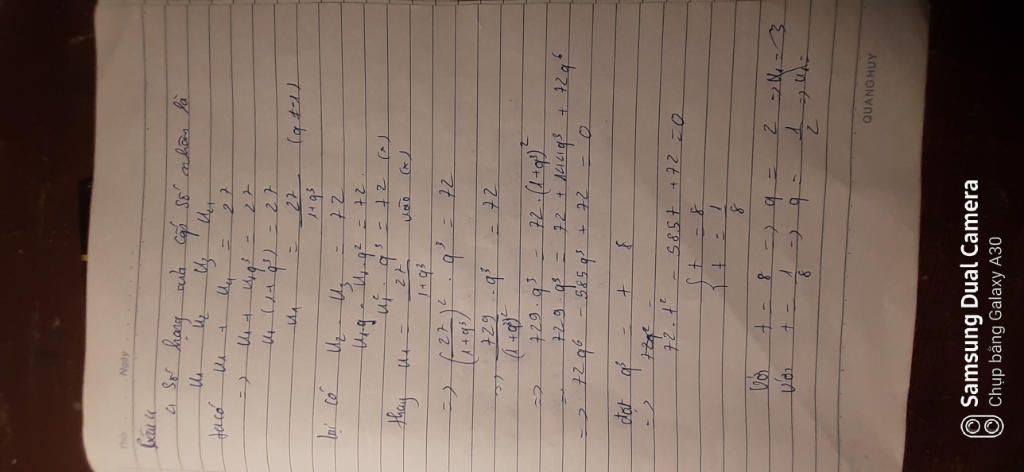 Thứ Ngày
Câu 4
4 số hạng của cấp số nhân là
u₁ u₂ u₃ u₄
ta có u₁ + u₄ = 27
=> u₁ + u₁q³ = 27
u₁ (1+q³) = 27
u₁ = 27/(1+q³) (q ≠ -1)
lại có u₂ . u₃ = 72
u₁q . u₁q² = 72
u₁² . q³ = 72 (*)
thay u₁ = 27/(1+q³) vào (*)
=> (27/(1+q³))² . q³ = 72
=> 729/(1+q³)² . q³ = 72
=> 729 . q³ = 72 . (1+q³)²
= 729 . q³ = 72 + 144q³ + 72q⁶
=> 72q⁶ - 585q³ + 72 = 0
đặt q³ = t
=> 72 . t² - 585t + 72 = 0
{ t = 8
{ t = 1/8
Với t = 8 => q = 2 => u₁ = 3
Với t = 1/8 => q = 1/2 => u₁ =
QUANG HUY
Samsung Dual Camera
Chụp bằng Galaxy A30